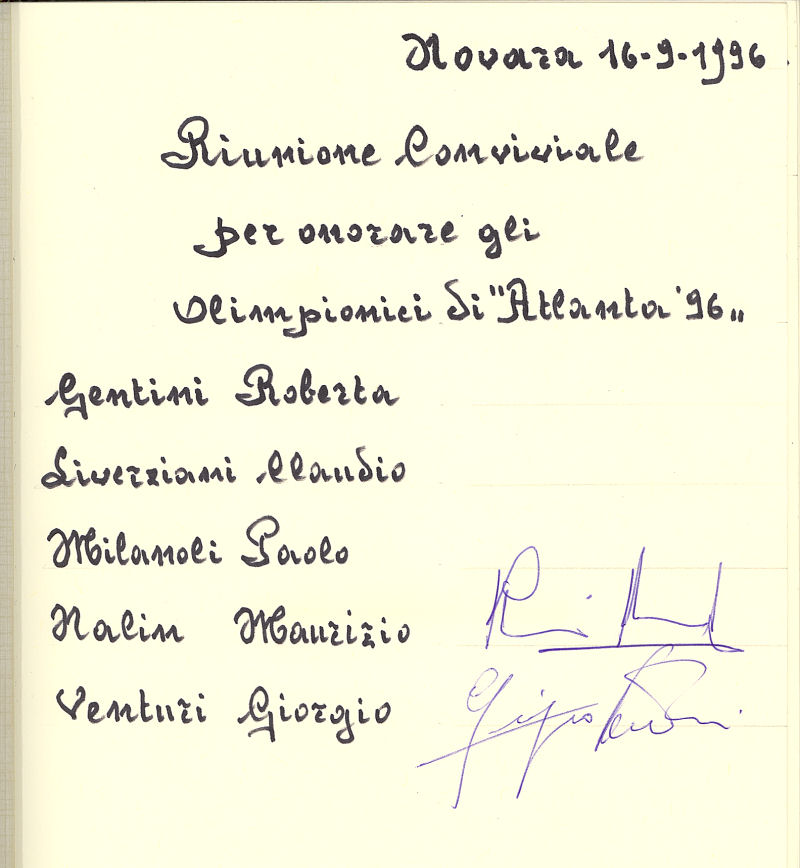 Novara 16-9-1996
Riunione Conviviale
per onorare gli
Olimpionici di "Atlanta '96"
Gentini Roberta
Liverziani Claudio
Milanoli Paolo
Nalin Maurizio
Venturi Giorgio
Giorgio Venturi